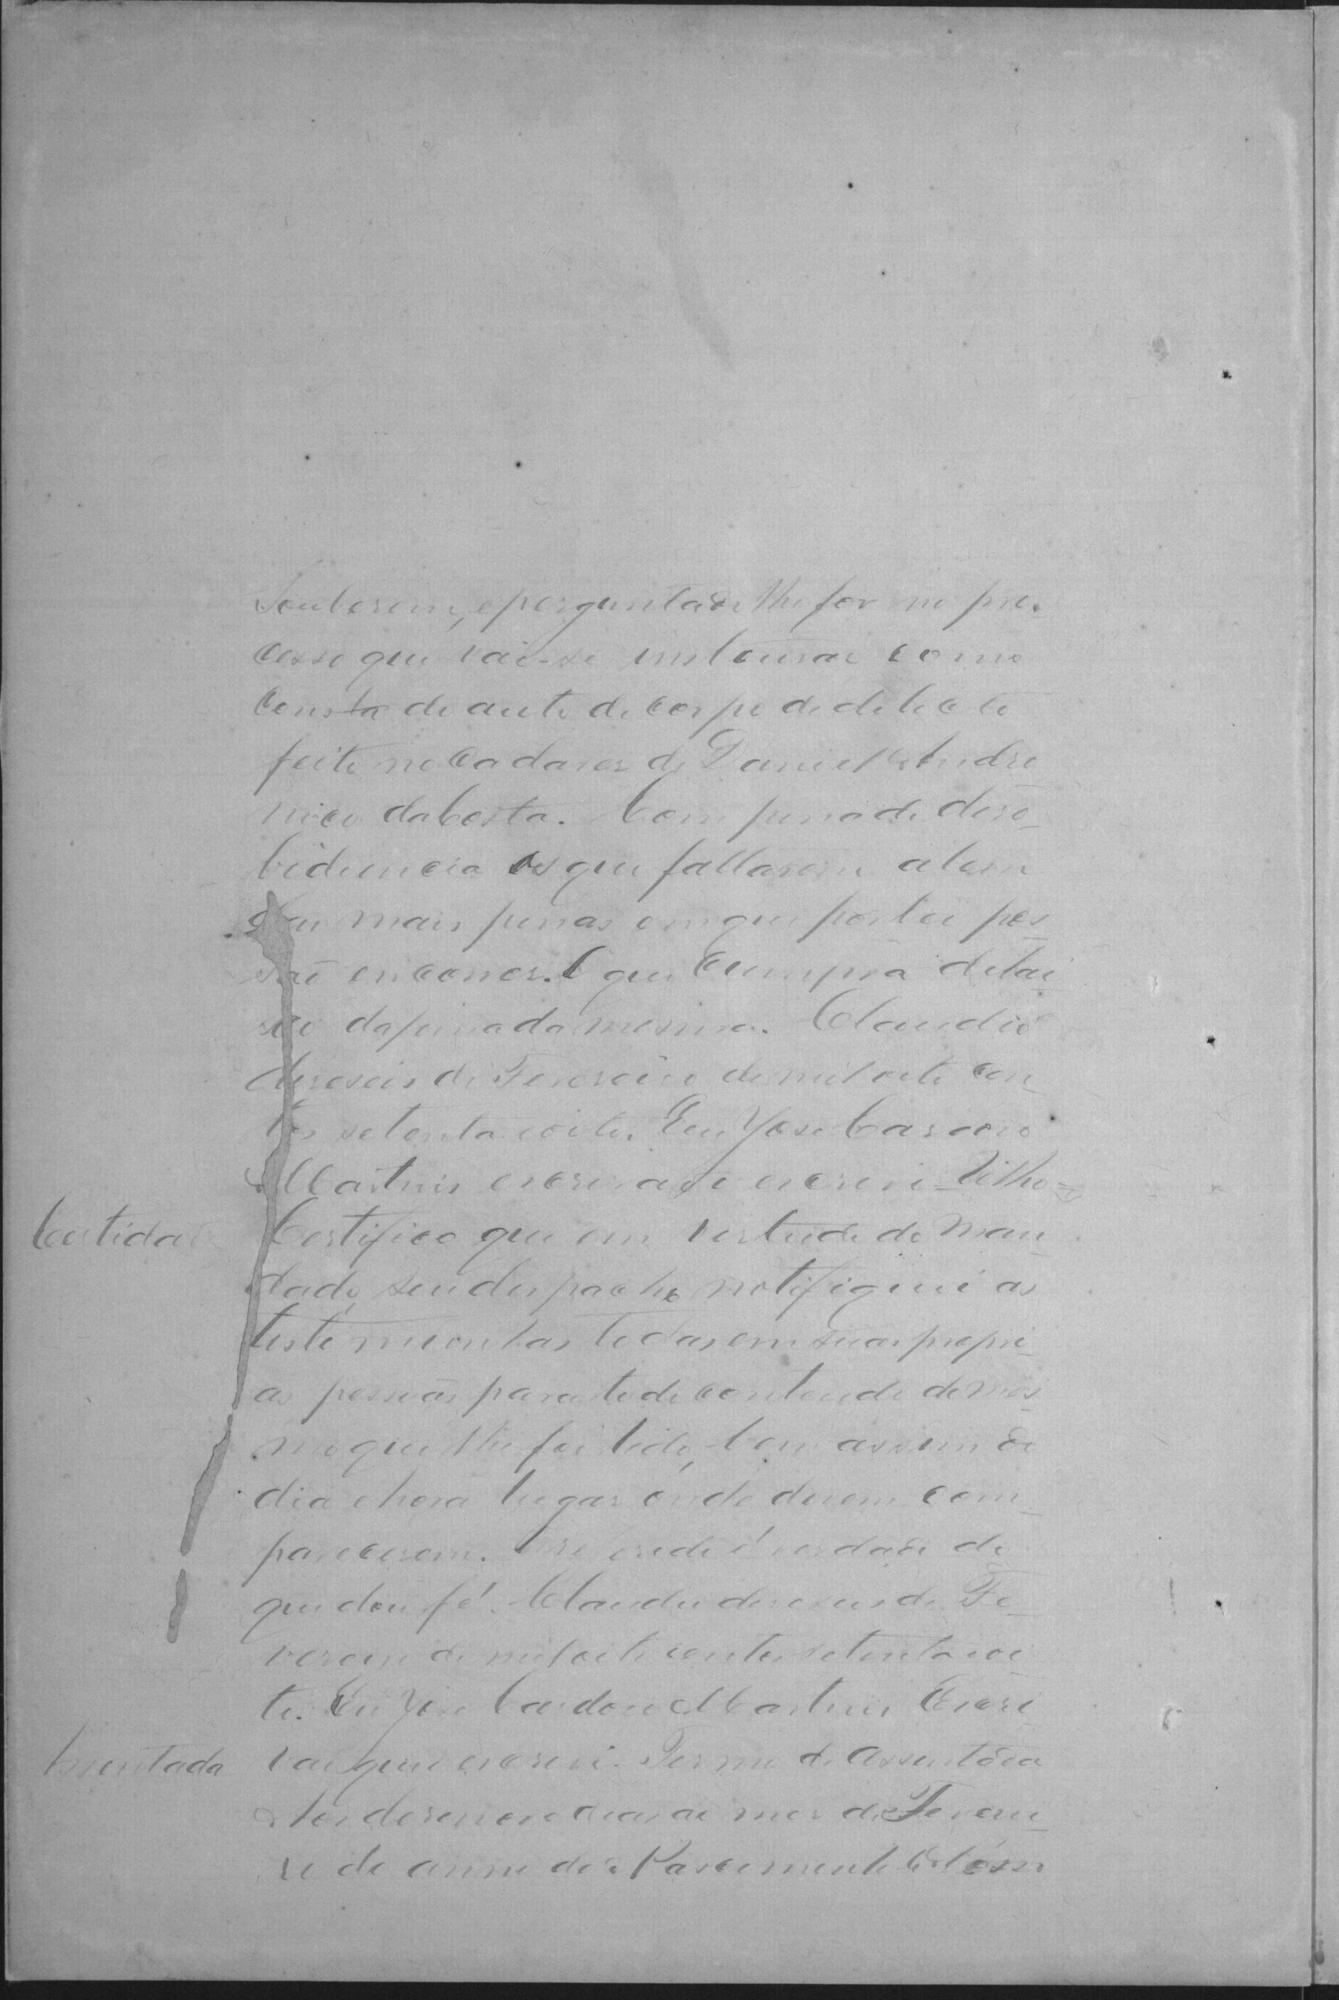 Souberem, e perguntado lhe for no pro-
cesso que vai-se instaurar como
consta do auto de corpo de delicto
feito no cadaver de Daniel Andro
nico da Costa. Com pena de deso-
bidiencia os que faltarem alem
das mais penas em que por lei pos-
são encorrer. O que cumpra debai
xo da pena da mesma. Claudio
deseseis de Fevereiro de mil oito cen-
tos setenta e oito. Eu José Cardoso
Martins escrivão o escrevi
Certidão Certifico que em vertude do man-
dado, seu despacho notifiquei as
testemunhas todas em suas propri-
as pessoas para todo contendo do mes-
mo que lhe foi lido, bem assim o
dia e hora lugar onde devem com-
parecerem. é verdade do
que dou fé. Claudio deseseis de Fe-
vereiro de mil oito centos setenta e oi
to. Eu José Cardoso Martins Escri
vão que o escrevi. Termo de Assentada
Assentada Aos desenove dias do mez de Feverei-
ro do anno do Nascimento de